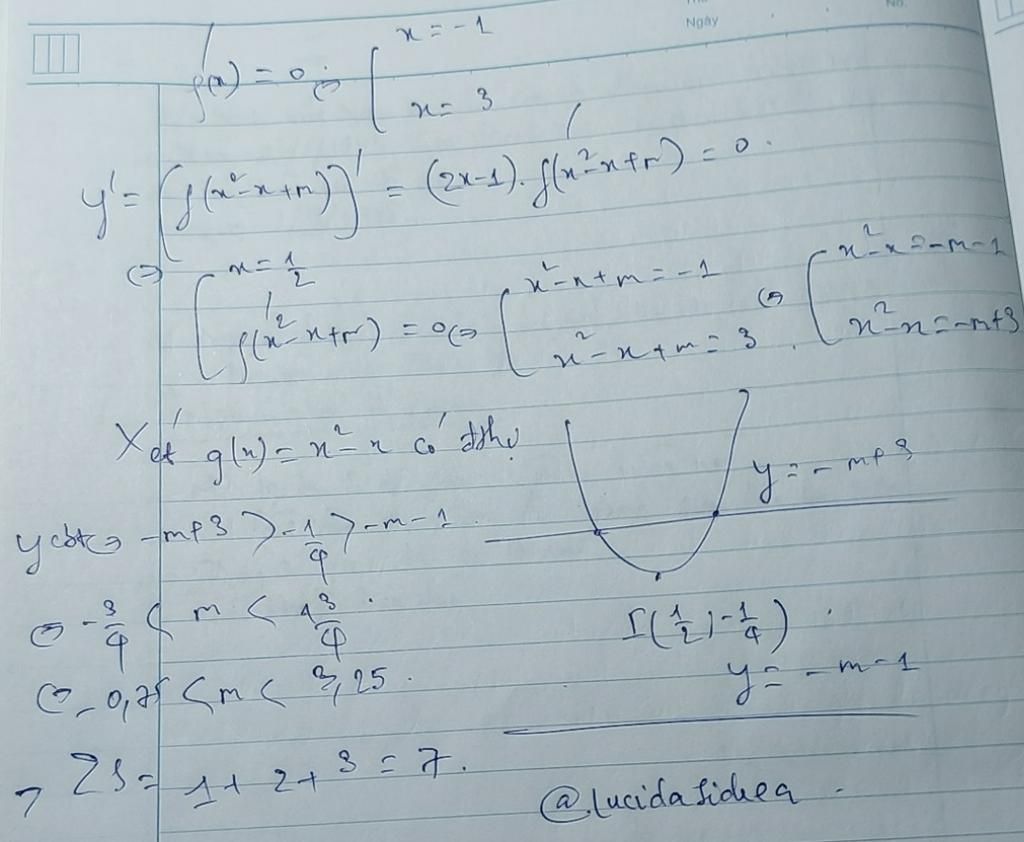 Ngày
No.
f'(x) = 0 ⇔ [ x = -1
x = 3
y' = [f(x²-x+m)]' = (2x-1).f'(x²-x+m) = 0.
⇔ [ x = 1/2
f'(x²-x+m) = 0 ⇔ [ x²-x+m = -1
x²-x+m = 3. ⇔ [ x²-x = -m-1
x²-x = -m+3
Xét g(x) = x²-x có đths
y = -m+3
ycbt ⇔ -m+3 > -1/4 > -m-1.
⇔ -3/4 < m < 13/4.
I(1/2; -1/4).
⇔ -0,75 < m < 3,25.
y = -m-1
ΣS = 1+2+3 = 7.
@.lucidasidera.